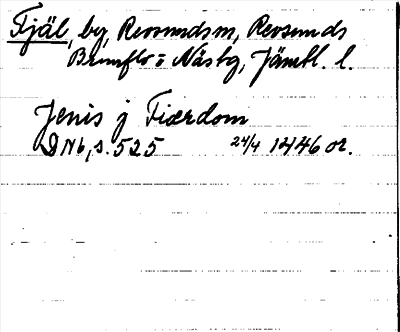 Fjäl, by, Revsundsm, Revsunds
Brunflo o Näsby, Jämtl. l.
Jenis j Fierdom
DN6, s. 525 24/4 1446 or.